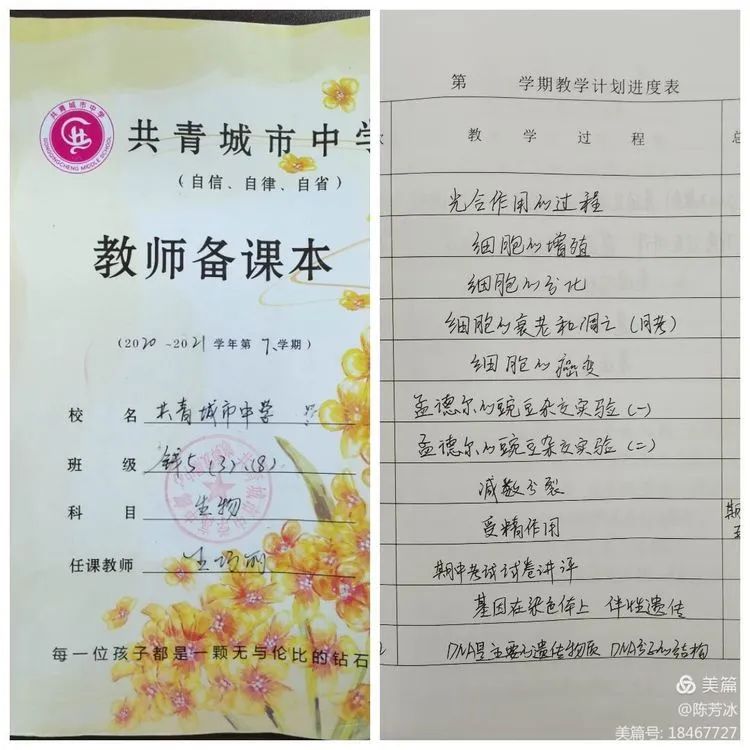 共青城市中学
GONGQINGCHENG MIDDLE SCHOOL
共青城市中学
（自信、自律、自省）
教师备课本
（2020～2021学年第下学期）
校 名 共青城市中学
班 级 (3)、(8)
科 目 生物
任课教师 王巧丽
每一位孩子都是一颗无与伦比的钻石
第 学期教学计划进度表
次 教 学 过 程 总
光合作用的过程
细胞的增殖
细胞的分化
细胞的衰老和凋亡（月考）
细胞的癌变
孟德尔的豌豆杂交实验（一）
孟德尔的豌豆杂交实验（二）
减数分裂
受精作用 期
期中考试试卷讲评
基因在染色体上 伴性遗传
2 DNA是主要的遗传物质 DNA分子的结构
美篇
@陈芳冰
美篇号: 18467727